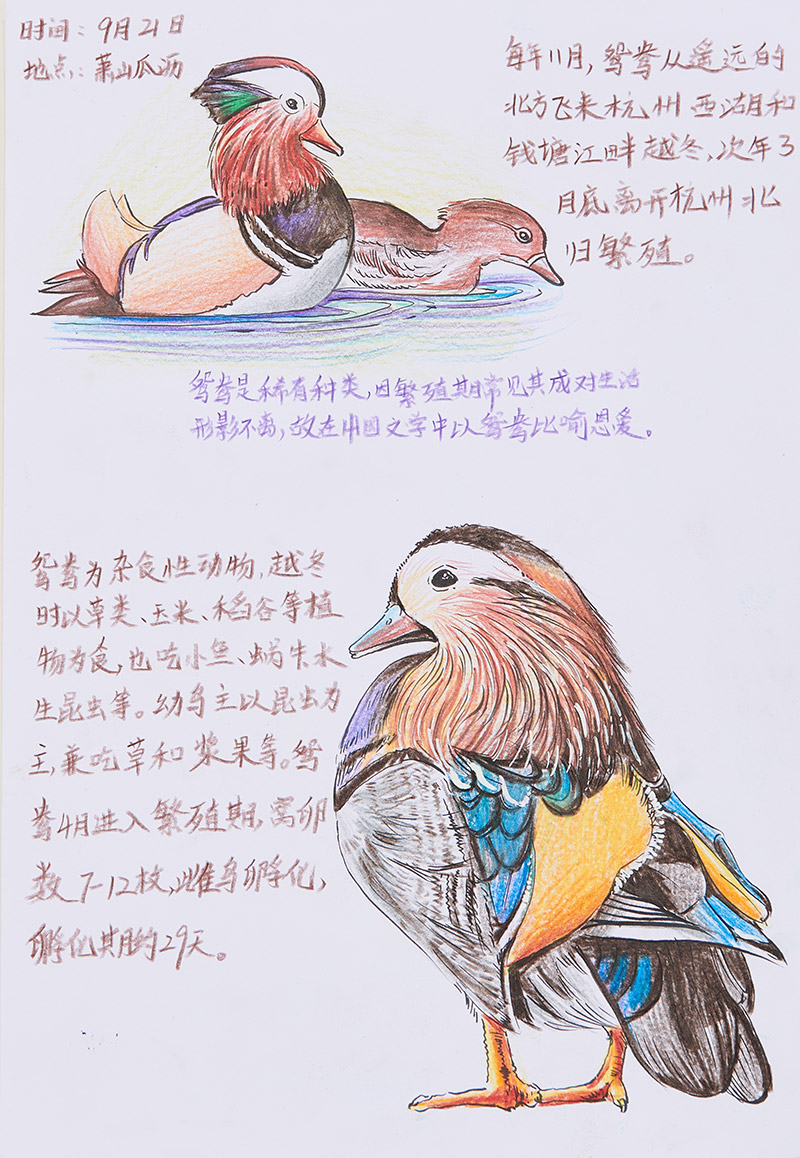 时间：9月21日
地点：萧山瓜沥
每年11月，鸳鸯从遥远的
北方飞来杭州西湖和
钱塘江畔越冬，次年3
月底离开杭州北
归繁殖。
鸳鸯是稀有种类，因繁殖期常见其成对生活
形影不离，故在中国文学中以鸳鸯比喻恩爱。
鸳鸯为杂食性动物，越冬
时以草类、玉米、稻谷等植
物为食，也吃小鱼、蜗牛水
生昆虫等。幼鸟主以昆虫为
主，兼吃草和浆果等。鸳
鸯4月进入繁殖期，窝卵
数7-12枚，雌鸟孵化，
孵化期约29天。